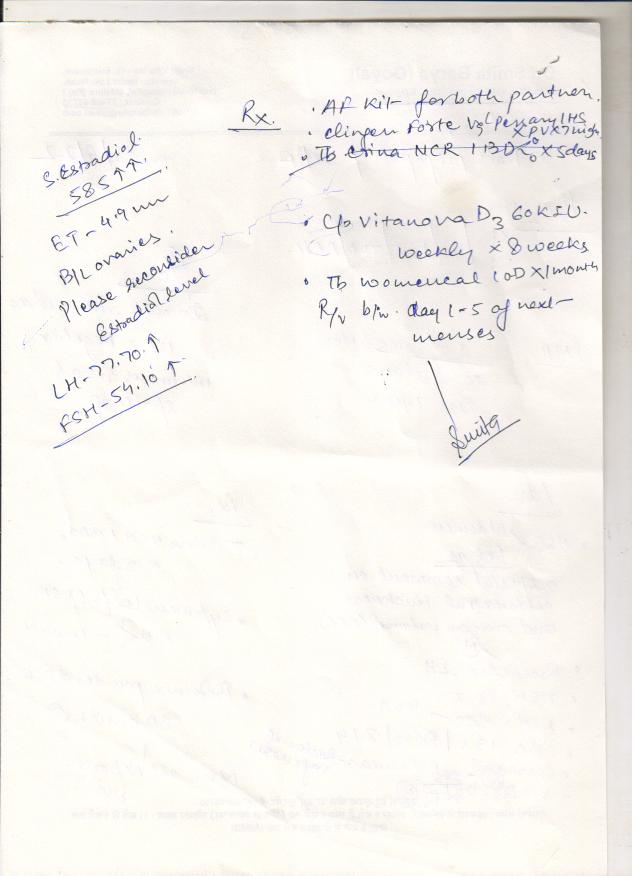 S. Estradiol
585 ↑↑.
ET - 4.9 mm
B/L ovaries.
Please reconsider
Estradiol level
LH - 77.70 ↑
FSH - 54.10 ↑
Rx.
· AF Kit for both partner.
· clingen Forte Vgl pessary 1 HS
X PV X 7 nights
· Tb NCR 1 BD X 5 days
· C/o Vitanova D3 60K IU.
weekly x 8 weeks
· Tb womencal 1 OD X 1 month
R/v b/w day 1-5 of next
menses
Smita